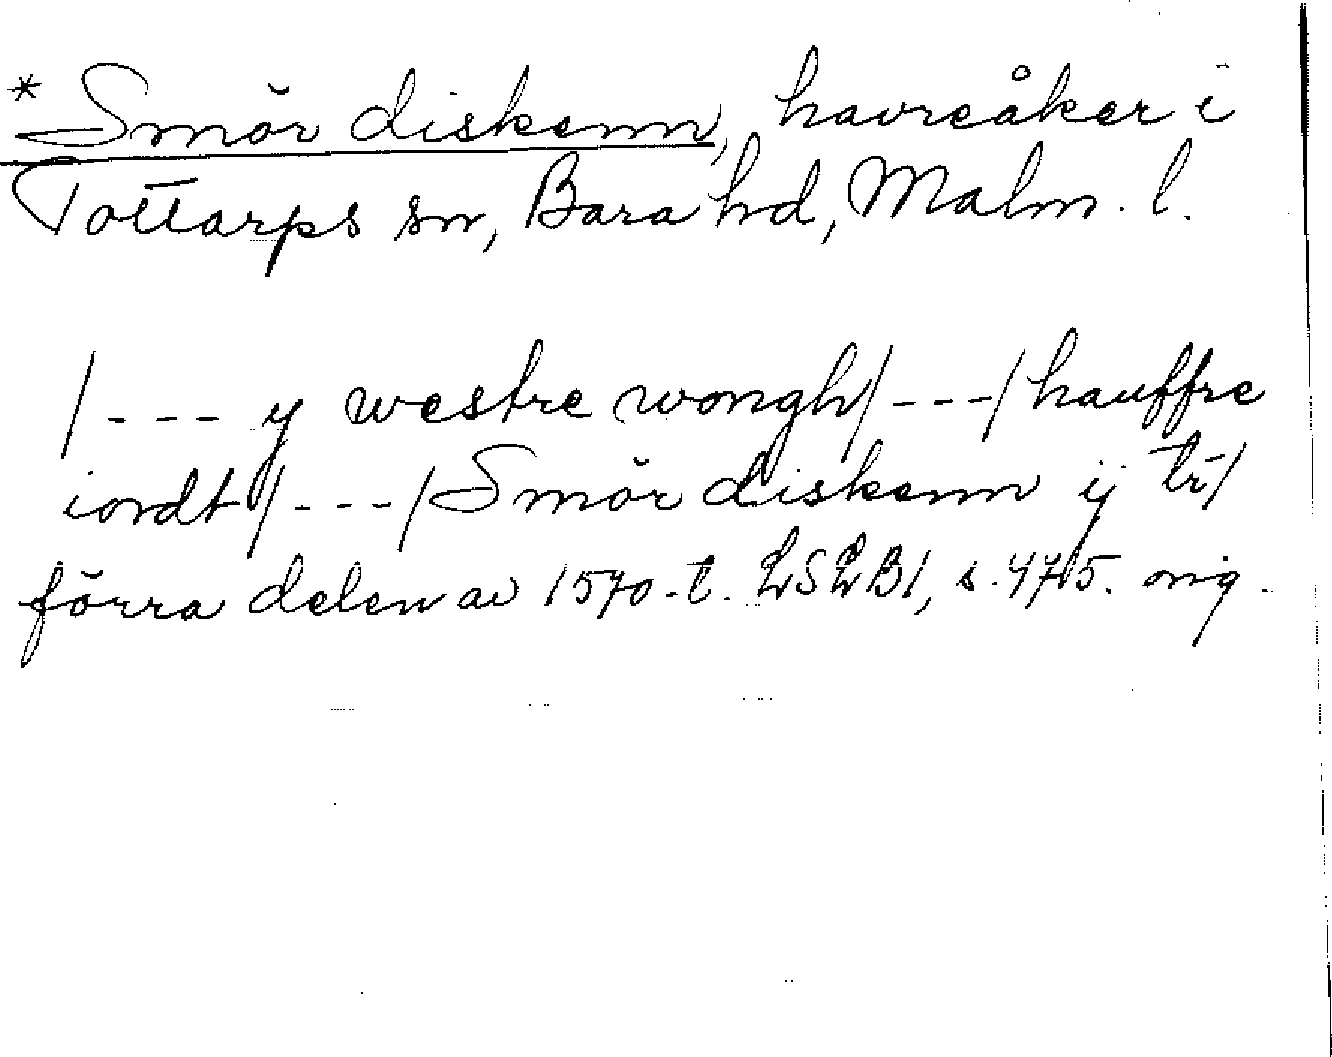 * Smör diskenn, havreåker i
Tottarps sn, Bara hd, Malm. l.
/--- y westre wongh/---/hauffre
iordt/---/Smör diskenn ij tr̄/
förra delen av 1570-t. LSLB1, s. 475. orig.